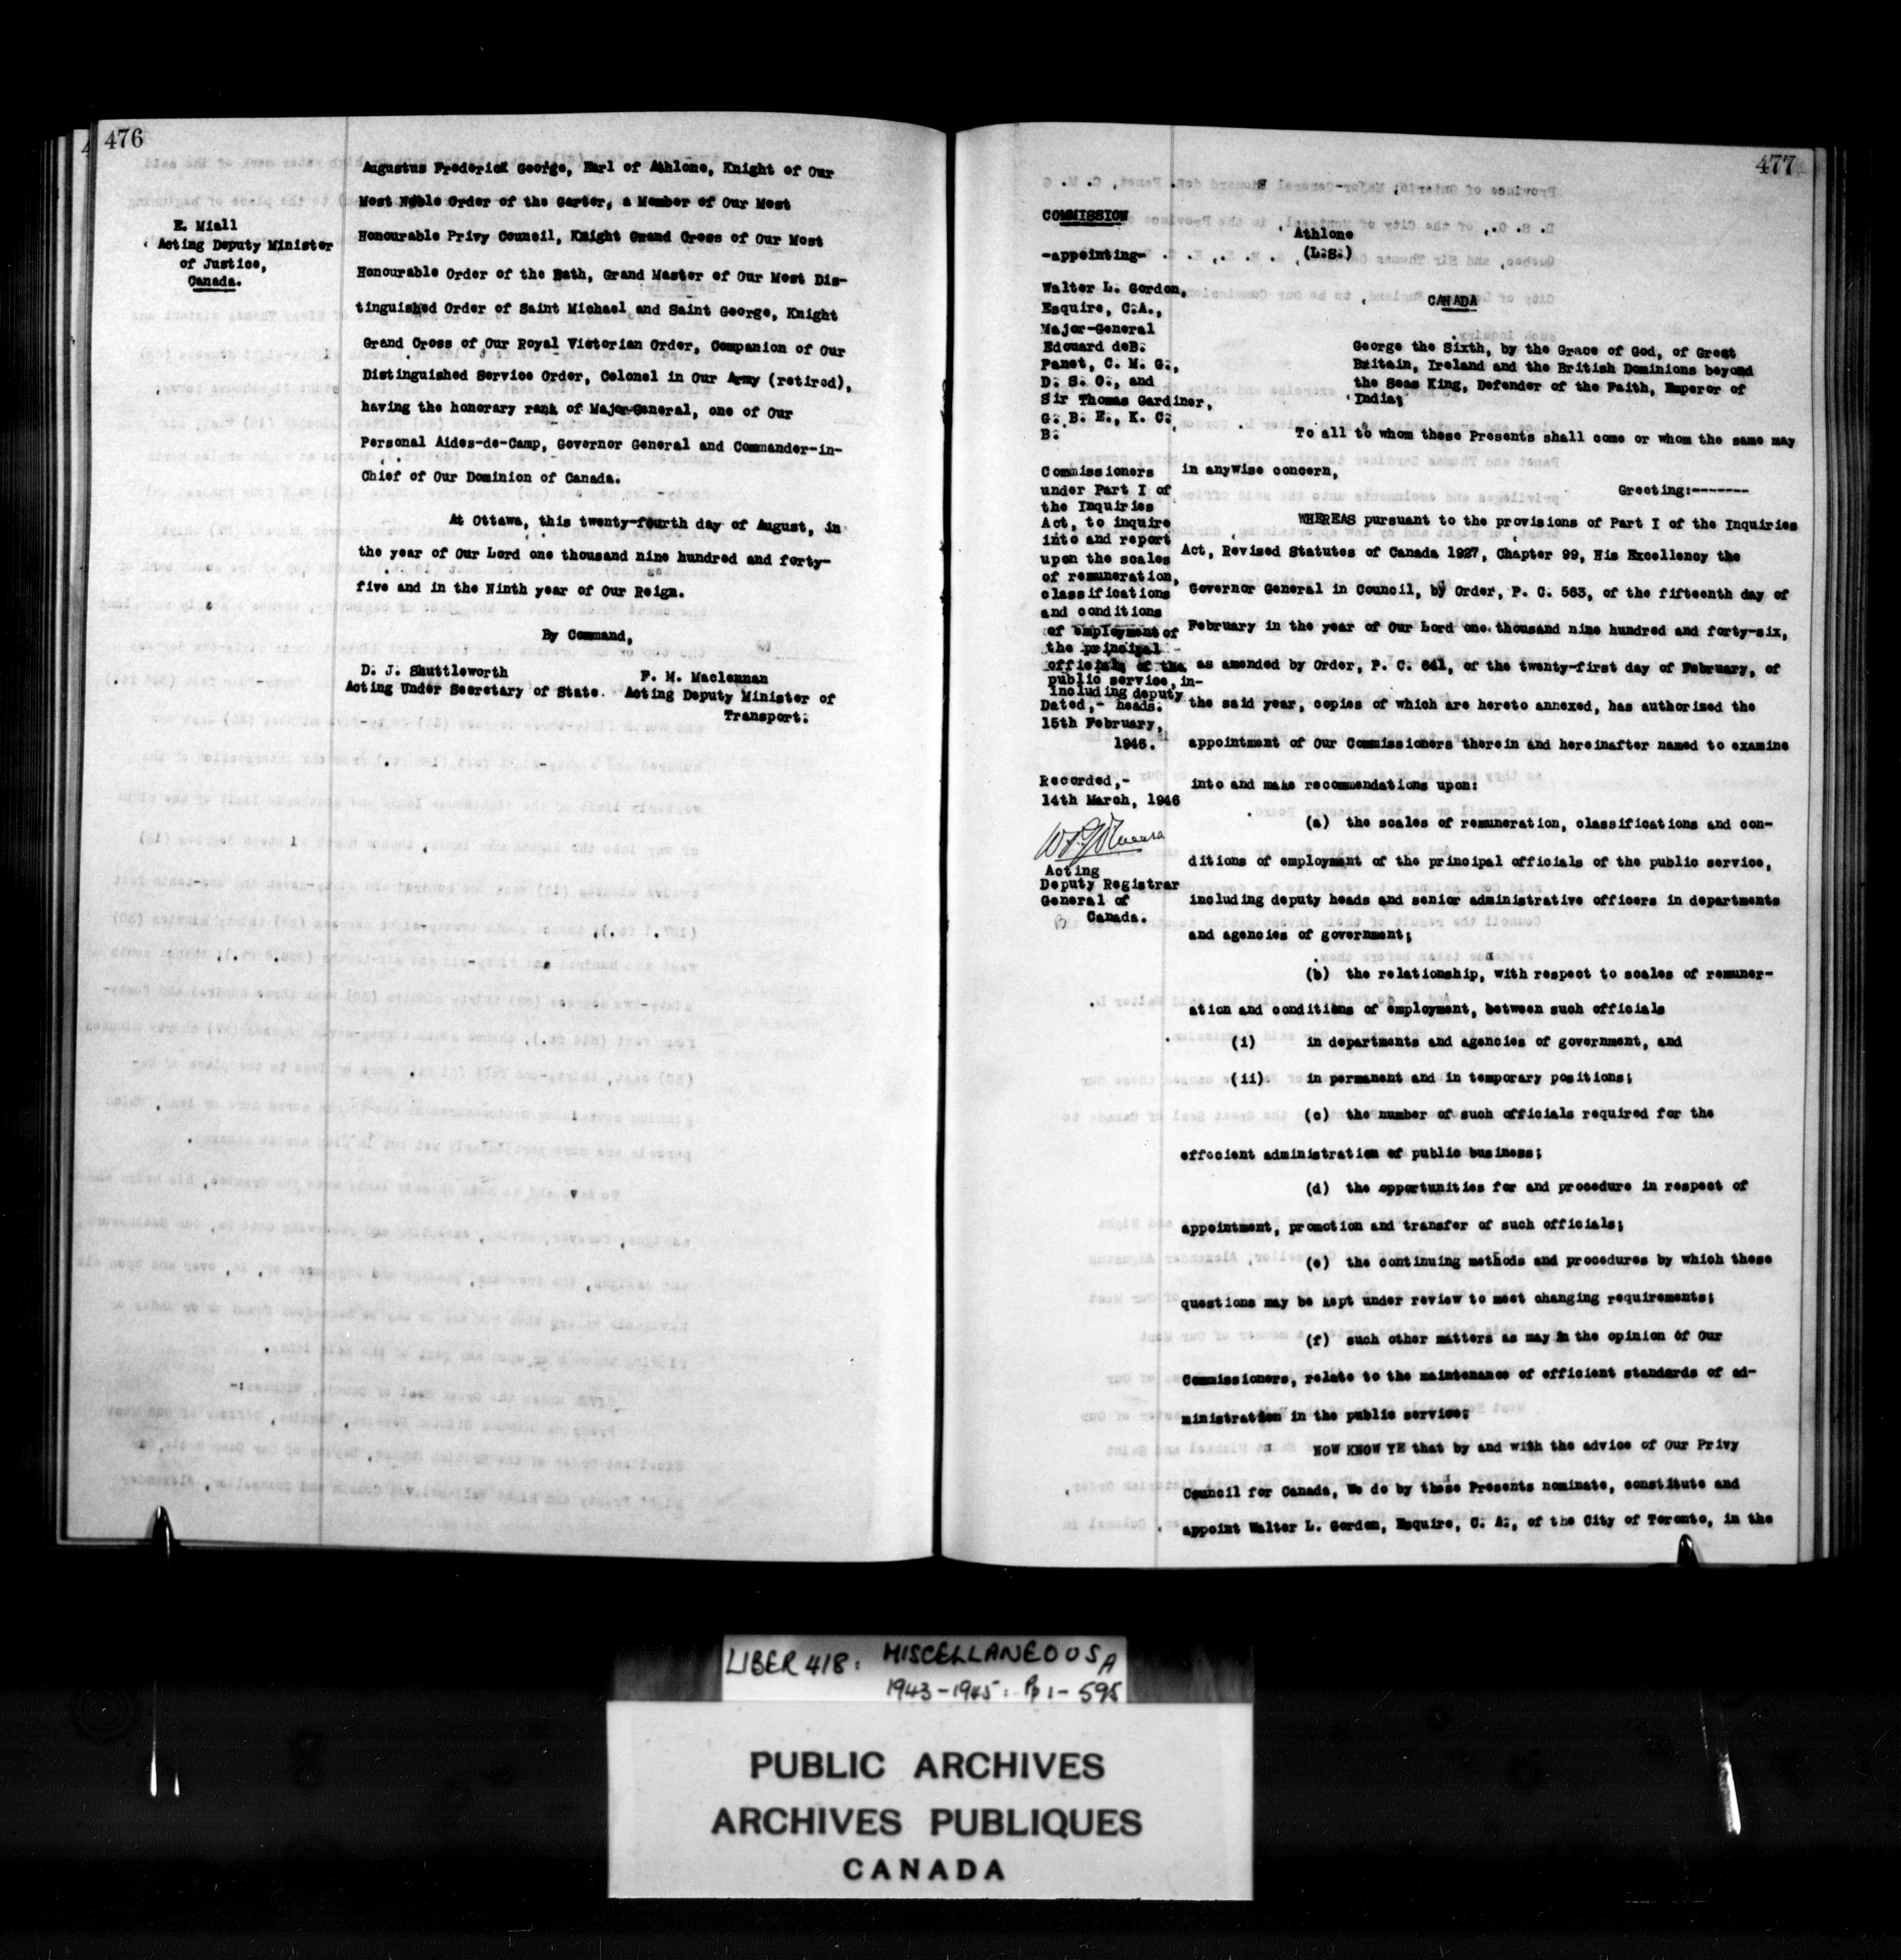 476
E. Miall
Acting Deputy Minister
of Justice,
Canada.
Augustus Frederick George, Earl of Athlone, Knight of Our
Most Noble Order of the Garter, a Member of Our Most
Honourable Privy Council, Knight Grand Cross of Our Most
Honourable Order of the Bath, Grand Master of Our Most Dis-
tinguished Order of Saint Michael and Saint George, Knight
Grand Cross of Our Royal Victorian Order, Companion of Our
Distinguished Service Order, Colonel in Our Army (retired),
having the honorary rank of Major-General, one of Our
Personal Aides-de-Camp, Governor General and Commander-in-
Chief of Our Dominion of Canada.
At Ottawa, this twenty-fourth day of August, in
the year of Our Lord one thousand nine hundred and forty-
five and in the Ninth year of Our Reign.
By Command,
D. J. Shuttleworth
Acting Under Secretary of State.
F. M. Maclennan
Acting Deputy Minister of
Transport.
477
COMMISSION
-appointing-
Walter L. Gordon,
Esquire, C.A.,
Major-General
Edouard deB.
Panet, C. M. G.,
D. S. O., and
Sir Thomas Gardiner,
G. B. E., K. C.
B.
Commissioners
under Part I of
the Inquiries
Act, to inquire
into and report
upon the scales
of remuneration,
classifications
and conditions
of employment of
the principal
officials of the
public service, in-
including deputy
Dated,- heads.
15th February,
1946.
Recorded,-
14th March, 1946
Acting
Deputy Registrar
General of
Canada.
Athlone
(L.S.)
CANADA
George the Sixth, by the Grace of God, of Great
Britain, Ireland and the British Dominions beyond
the Seas King, Defender of the Faith, Emperor of
India;
To all to whom these Presents shall come or whom the same may
in anywise concern,
Greeting:-------
WHEREAS pursuant to the provisions of Part I of the Inquiries
Act, Revised Statutes of Canada 1927, Chapter 99, His Excellency the
Governor General in Council, by Order, P. C. 563, of the fifteenth day of
February in the year of Our Lord one thousand nine hundred and forty-six,
as amended by Order, P. C. 641, of the twenty-first day of February, of
the said year, copies of which are hereto annexed, has authorized the
appointment of Our Commissioners therein and hereinafter named to examine
into and make recommendations upon:
(a) the scales of remuneration, classifications and con-
ditions of employment of the principal officials of the public service,
including deputy heads and senior administrative officers in departments
and agencies of government;
(b) the relationship, with respect to scales of remuner-
ation and conditions of employment, between such officials
(i) in departments and agencies of government, and
(ii) in permanent and in temporary positions;
(c) the number of such officials required for the
effocient administration of public business;
(d) the opportunities for and procedure in respect of
appointment, promotion and transfer of such officials;
(e) the continuing methods and procedures by which these
questions may be kept under review to meet changing requirements;
(f) such other matters as may in the opinion of Our
Commissioners, relate to the maintenance of efficient standards of ad-
ministration in the public service:
NOW KNOW YE that by and with the advice of Our Privy
Council for Canada, We do by these Presents nominate, constitute and
appoint Walter L. Gordon, Esquire, C. A., of the City of Toronto, in the
LIBER 418: MISCELLANEOUS A
1943-1945: Pp 1-595
PUBLIC ARCHIVES
ARCHIVES PUBLIQUES
CANADA